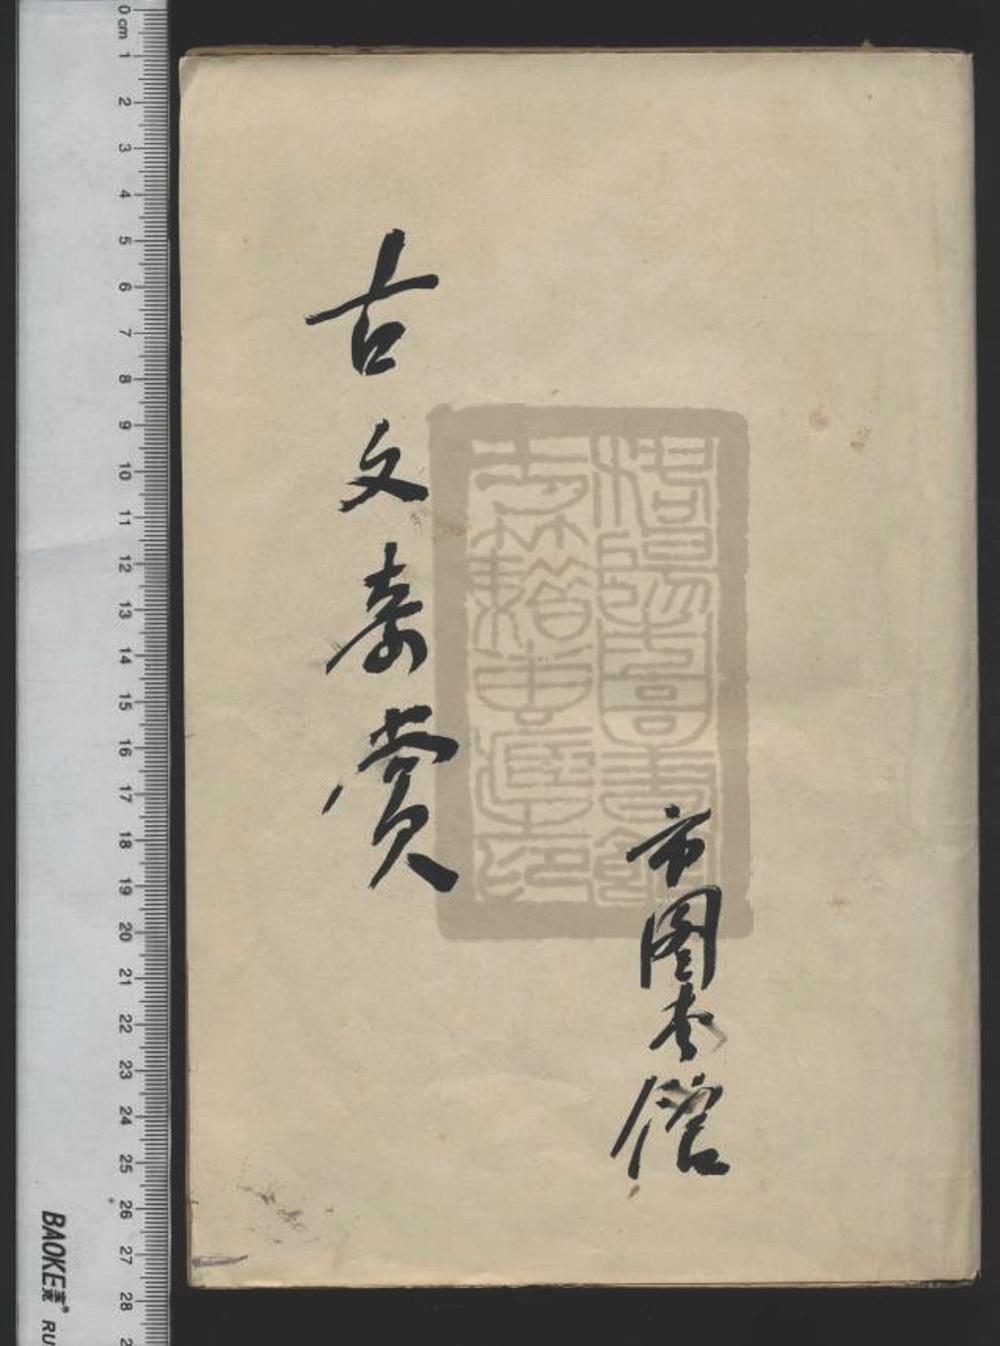 古文奇赏
市图书馆
0 cm 1 2 3 4 5 6 7 8 9 10 11 12 13 14 15 16 17 18 19 20 21 22 23 24 25 26 27 28
BAOKE宝克® RU